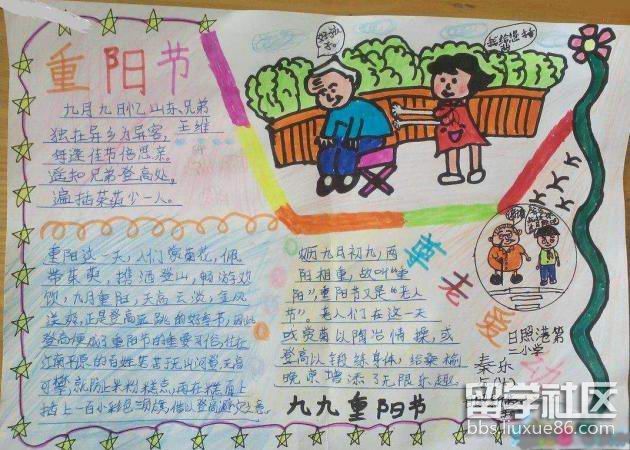 重阳节
九月九日忆山东兄弟
王维
独在异乡为异客,
每逢佳节倍思亲。
遥知兄弟登高处,
遍插茱萸少一人。
重阳这一天,人们赏菊花,佩
带茱萸,携酒登山,畅游欢
饮,九月重阳,天高云淡,金风
送爽,正是登高
登高便成了重阳节的重要习俗,住在
江南平原的百姓苦于无山可登,无高
可攀,就仿上米粉糕点,再在糕面上
插上一百小彩色
农历九月初九,两
阳相重,故叫"重
阳",重阳节又是"老人
节"。老人们在这一天
或赏菊以陶冶情操,或
登高以锻炼身体,给桑榆
晚景增添了无限乐趣。
九九重阳节
尊老爱幼
日照港第
二小学
秦乐
留学社区
bbs.liuxue86.com